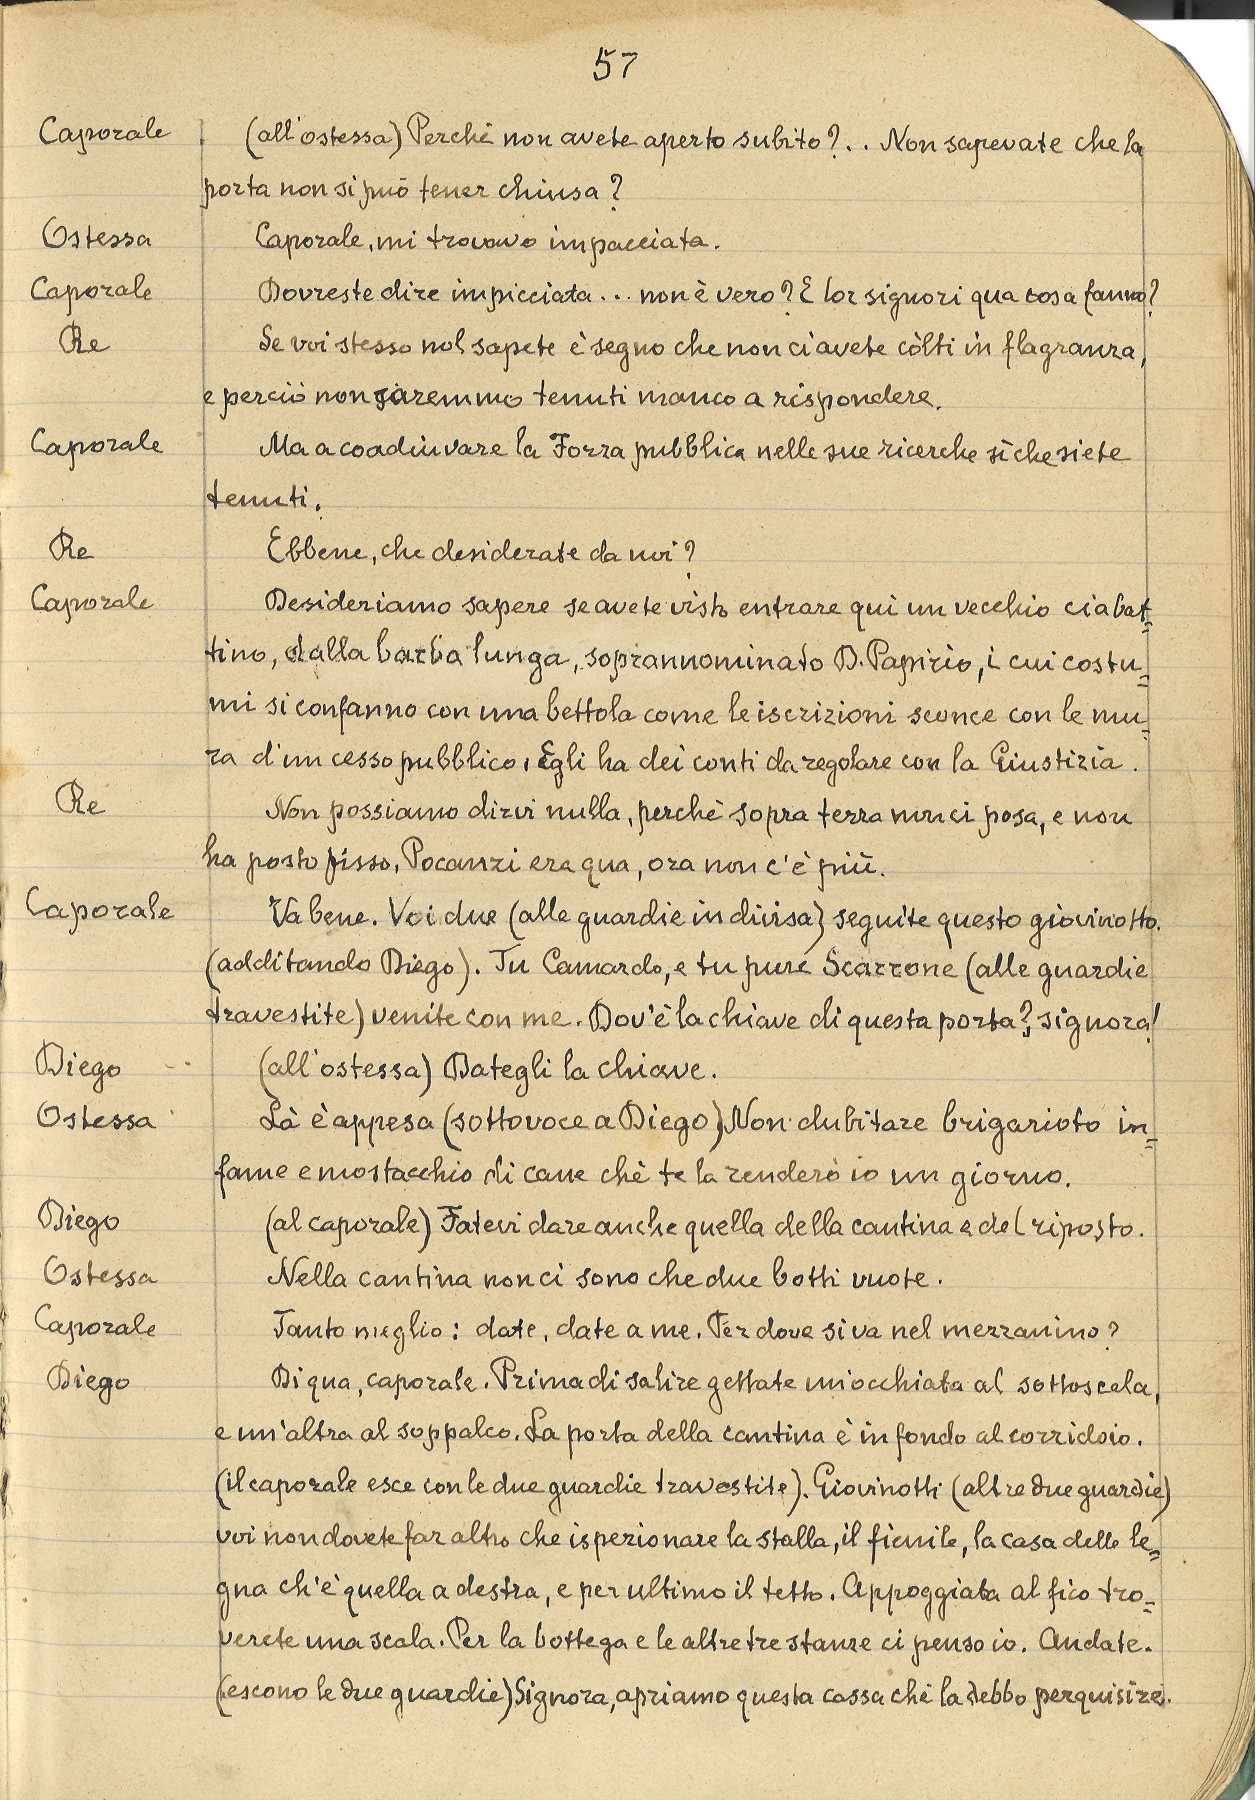 57
Caporale (all'ostessa) Perchè non avete aperto subito?.. Non sapevate che la
porta non si può tener chiusa?
Ostessa Caporale, mi trovavo impacciata.
Caporale Dovreste dire impicciata... non è vero? E lor signori qua cosa fanno?
Re Se voi stesso nol sapete è segno che non ci avete còlti in flagranza,
e perciò non saremmo tenuti manco a rispondere.
Caporale Ma a coadiuvare la Forza pubblica nelle sue ricerche sì che siete
tenuti.
Re Ebbene, che desiderate da noi?
Caporale Desideriamo sapere se avete visto entrare qui un vecchio ciabat=
tino, dalla barba lunga, soprannominato D. Papirio, i cui costu=
mi si confanno con una bettola come le iscrizioni sconce con le mu=
ra d'un cesso pubblico. Egli ha dei conti da regolare con la Giustizia.
Re Non possiamo dirvi nulla, perchè sopra terra non ci posa, e non
ha posto fisso. Pocanzi era qua, ora non c'è più.
Caporale Va bene. Voi due (alle guardie in divisa) seguite questo giovinotto.
(additando Diego). Tu Camardo, e tu pure Scarrone (alle guardie
travestite) venite con me. Dov'è la chiave di questa porta?, signora!
Diego (all'ostessa) Dategli la chiave.
Ostessa Là è appesa (sottovoce a Diego) Non dubitare brigarioto in=
fame e mostacchio di cane chè te la renderò io un giorno.
Diego (al caporale) Fatevi dare anche quella della cantina e del riposto.
Ostessa Nella cantina non ci sono che due botti vuote.
Caporale Tanto meglio: date, date a me. Per dove si va nel mezzanino?
Diego Di qua, caporale. Prima di salire gettate un'occhiata al sottoscala,
e un'altra al soppalco. La porta della cantina è in fondo al corridoio.
(il caporale esce con le due guardie travestite). Giovinotti (altre due guardie)
voi non dovete far altro che ispezionare la stalla, il fienile, la casa delle le=
gna ch'è quella a destra, e per ultimo il tetto. Appoggiata al fico tro=
verete una scala. Per la bottega e le altre tre stanze ci penso io. Andate.
(escono le due guardie) Signora, apriamo questa cassa chè la debbo perquisire.